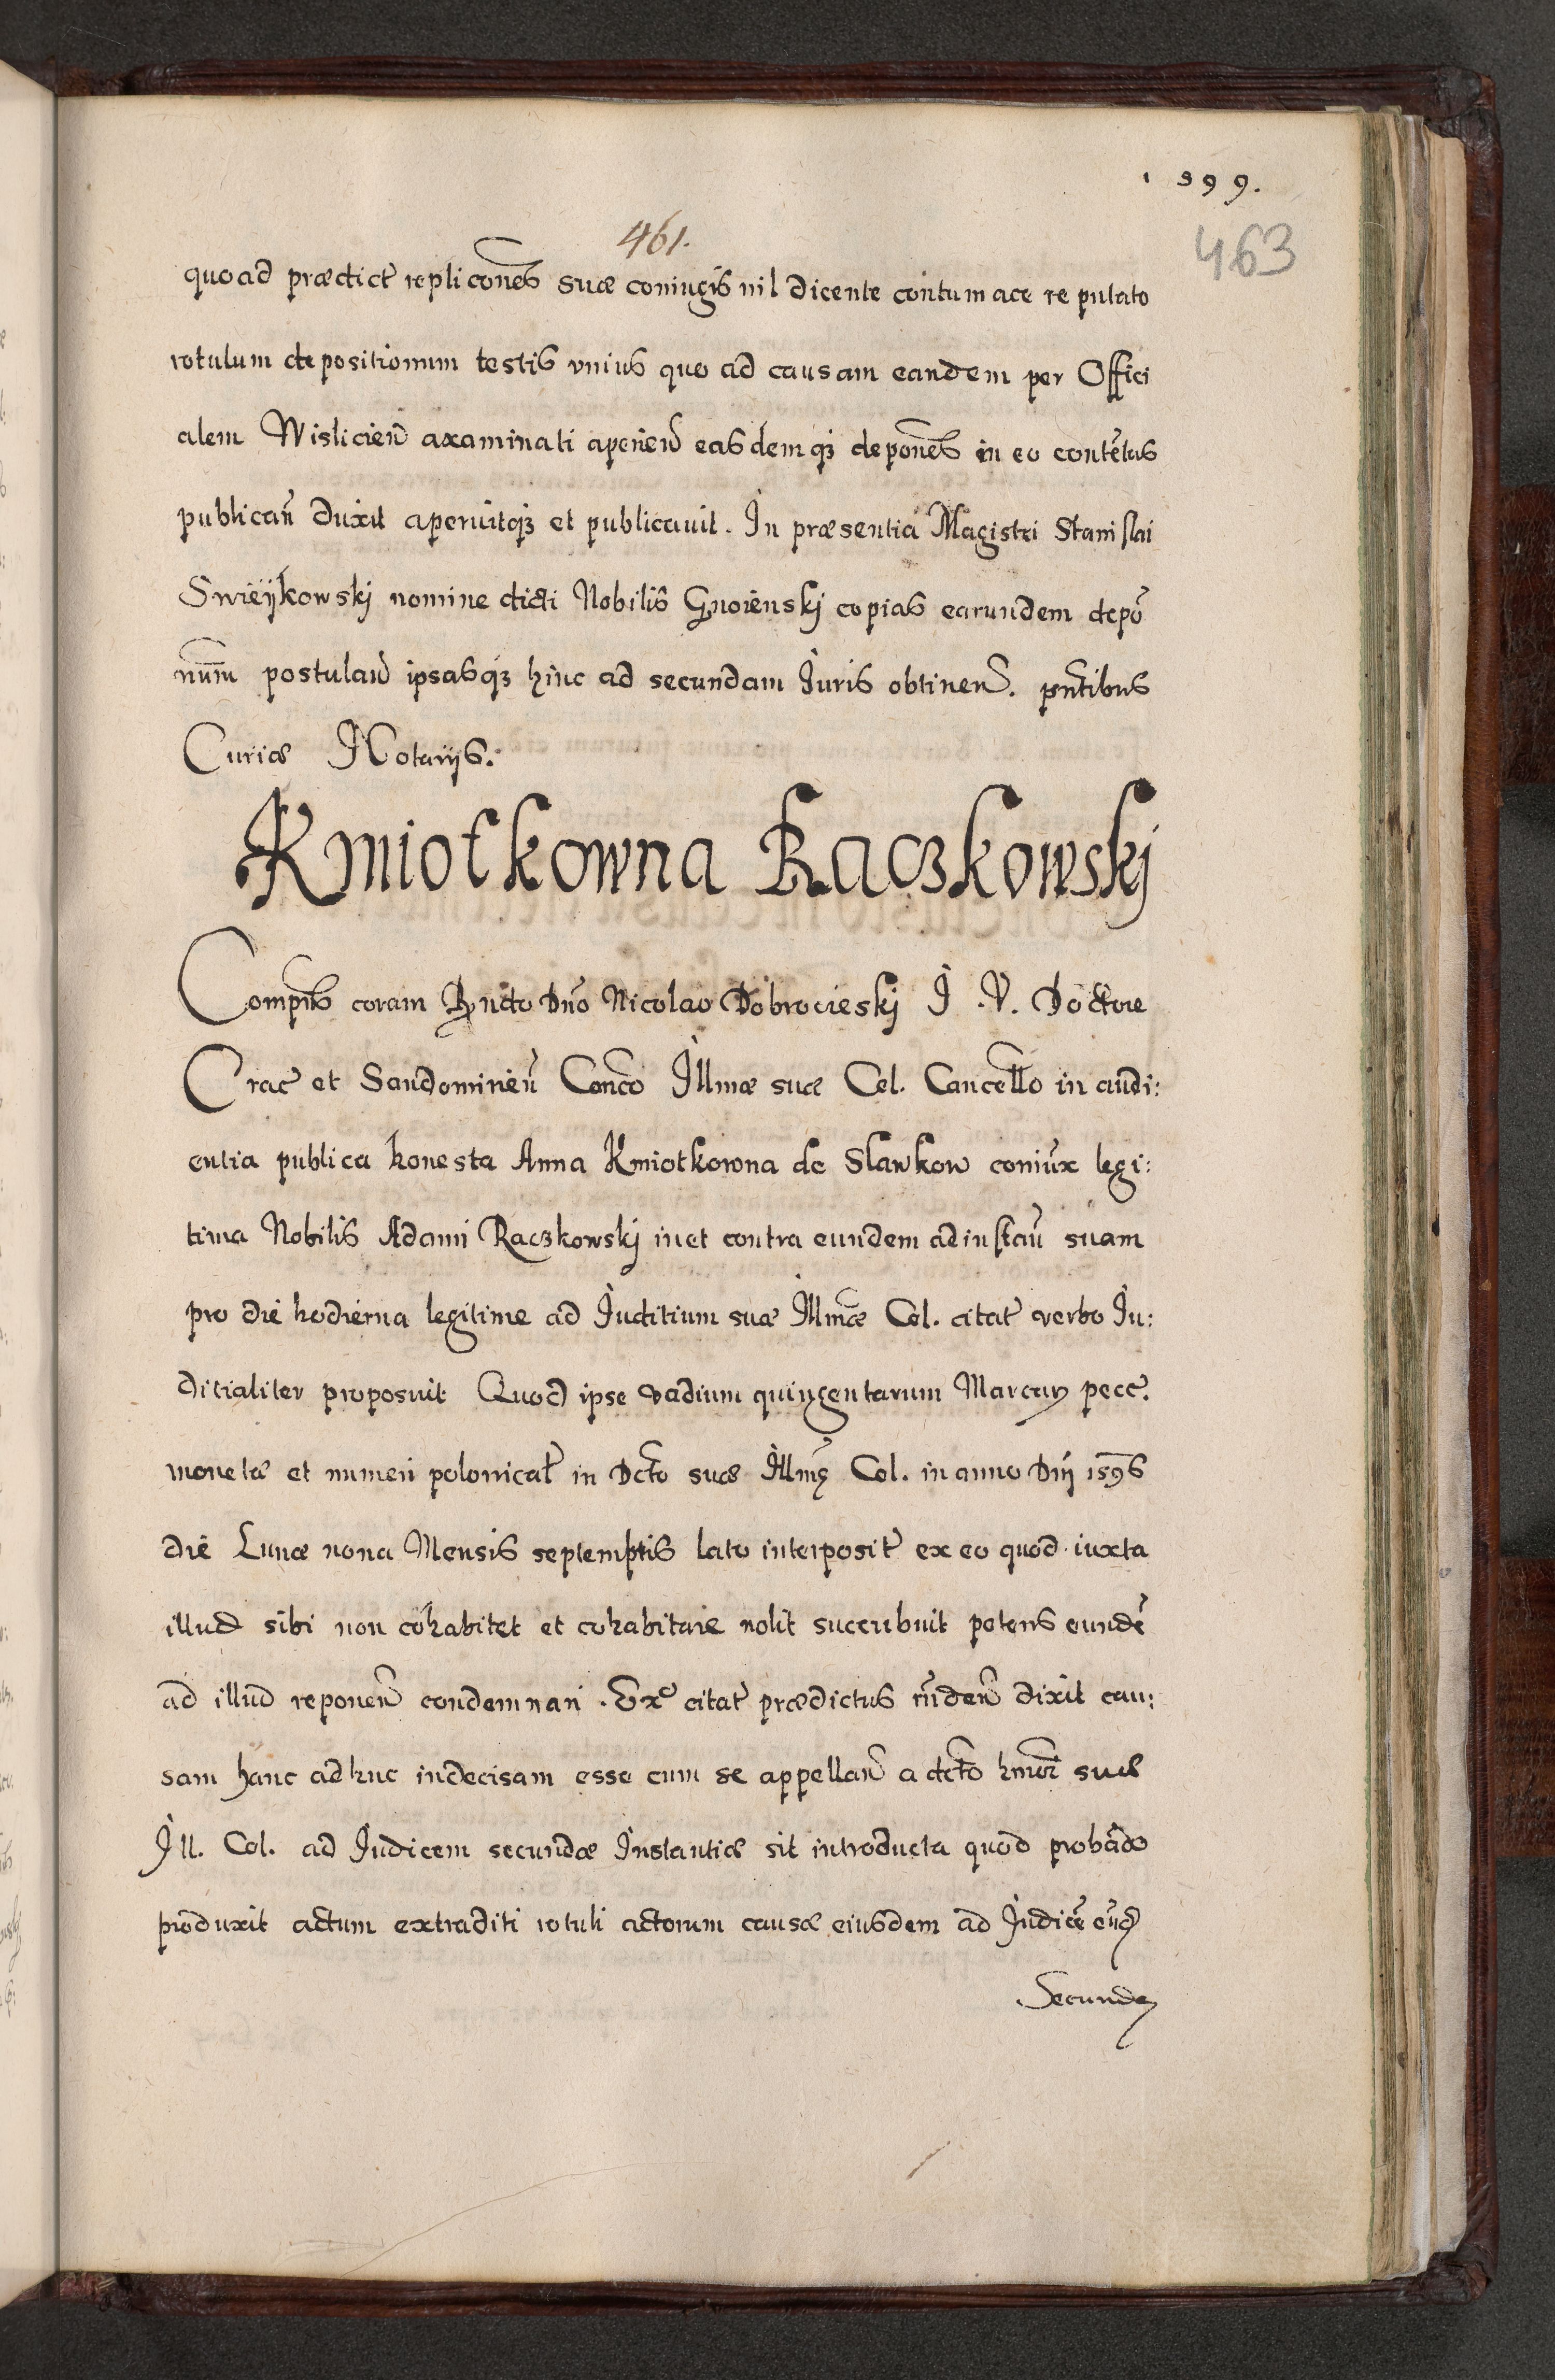 1599.
461.
463
quoad prædict̃ replicoñes suæ coniugis nil dicente contumace reputato
rotulum depositionum testis vnius quo ad causam eandem per Offici
alem Wislicieñ axaminati aperieñ easdemqꝫ deponẽs in eo contẽtas
publicañ duxit aperuitqꝫ et publicauit. In præsentia Magistri Stanislai
Swieÿkowskj nomine dicti Nobilis Gnoienskj copias earundem depõ
num̃ postulañ ipsasqꝫ hinc ad secundam Iuris obtineñ. pñtibus
Curiæ Notarijs.
Kmiotkowna Raczkowskj
Comprñs coram Rñdo Dño Nicolao Dobrocieskj I. V. Doctore
Crac̃ et Sandomirieñ Canco Illmæ suæ Cel. Cancello in audi:
entia publica honesta Anna Kmiotkowna de Slawkow coniux legi:
tima Nobilis Adami Raczkowskj in et contra eundem ad instañ suam
pro die hodierna legitime ad Iuditium suæ Illmæ Cel. citat̃ verbo Iu:
ditialiter proposuit Quod ipse vadium quingentarum Marcarum pecc̃.
monetæ et numeri polonical̃ in Dcto suæ Illmę Cel. in anno Dñi 1596
die Lunæ nona Mensis septembris lato interposit̃ ex eo quod iuxta
illud sibi non cohabitet et cohabitare nolit succubuit petens eundẽ
ad illud reponeñ condemnari. Ex° citat̃ prædictus rñdeñ dixit cau:
sam hanc adhuc indecisam esse cum se appellañ a dcto hmõi suæ
Ill. Cel. ad Iudicem secundæ Instantiæ sit introducta quod probãdo
produxit actum extraditi rotuli actorum causæ eiusdem ad Iudicẽ eund
Secundæ